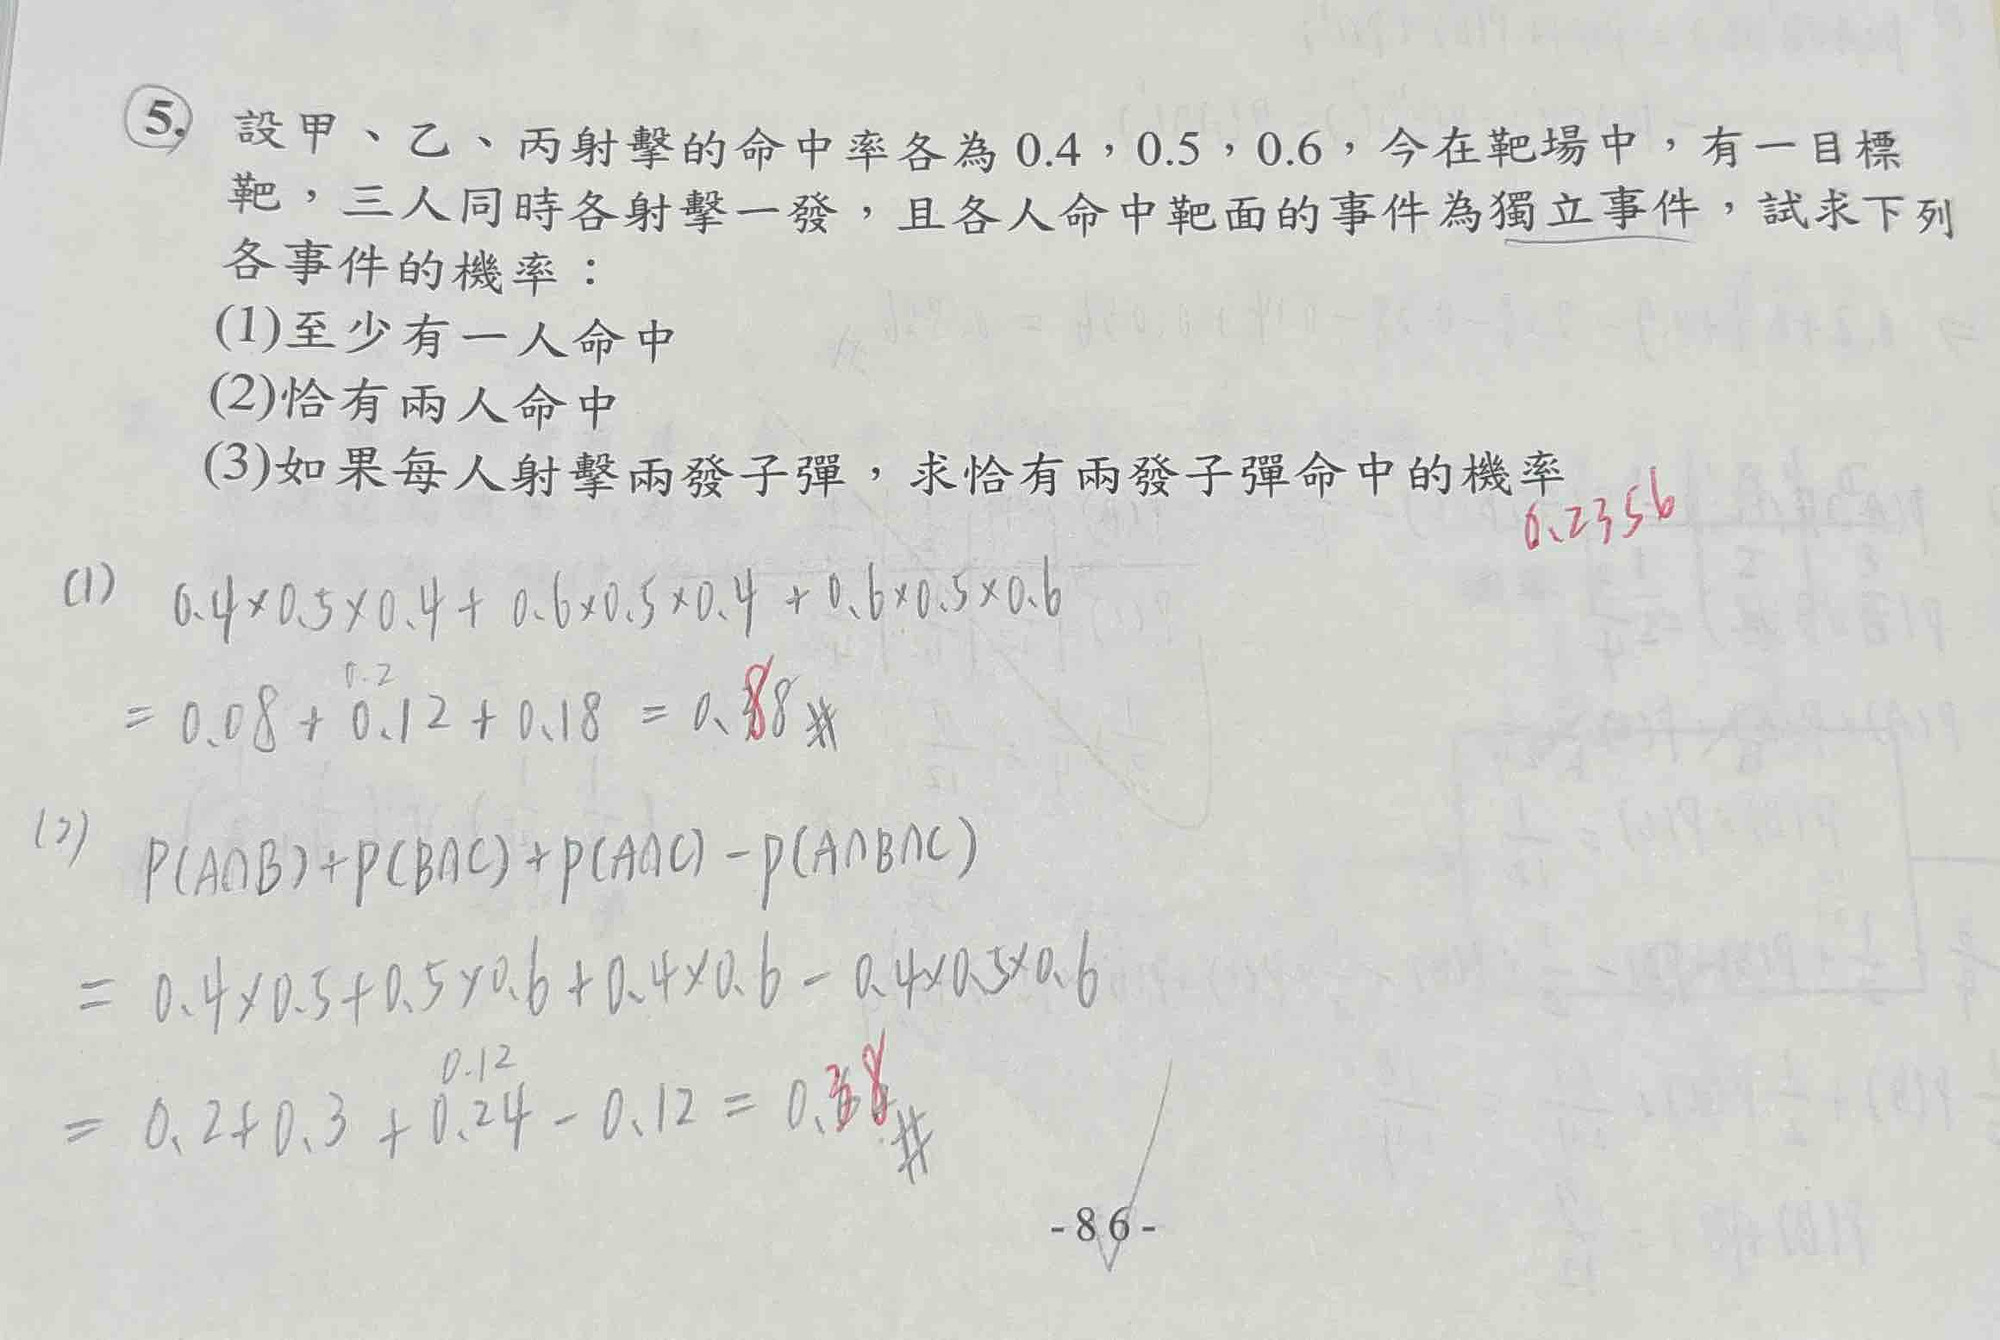 5. 設甲、乙、丙射擊的命中率各為 0.4，0.5，0.6，今在靶場中，有一目標
靶，三人同時各射擊一發，且各人命中靶面的事件為獨立事件，試求下列
各事件的機率：
(1)至少有一人命中
(2)恰有兩人命中
(3)如果每人射擊兩發子彈，求恰有兩發子彈命中的機率
0.2356
(1) 0.4×0.5×0.4+ 0.6×0.5×0.4 + 0.6×0.5×0.6
0.2
= 0.08+ 0.12+0.18 = 0.88 #
(2) P(A∩B)+P(B∩C)+P(A∩C)-P(A∩B∩C)
= 0.4×0.5+0.5×0.6+0.4×0.6-0.4×0.5×0.6
0.12
= 0.2+0.3+0.24-0.12 = 0.38 #
-86-